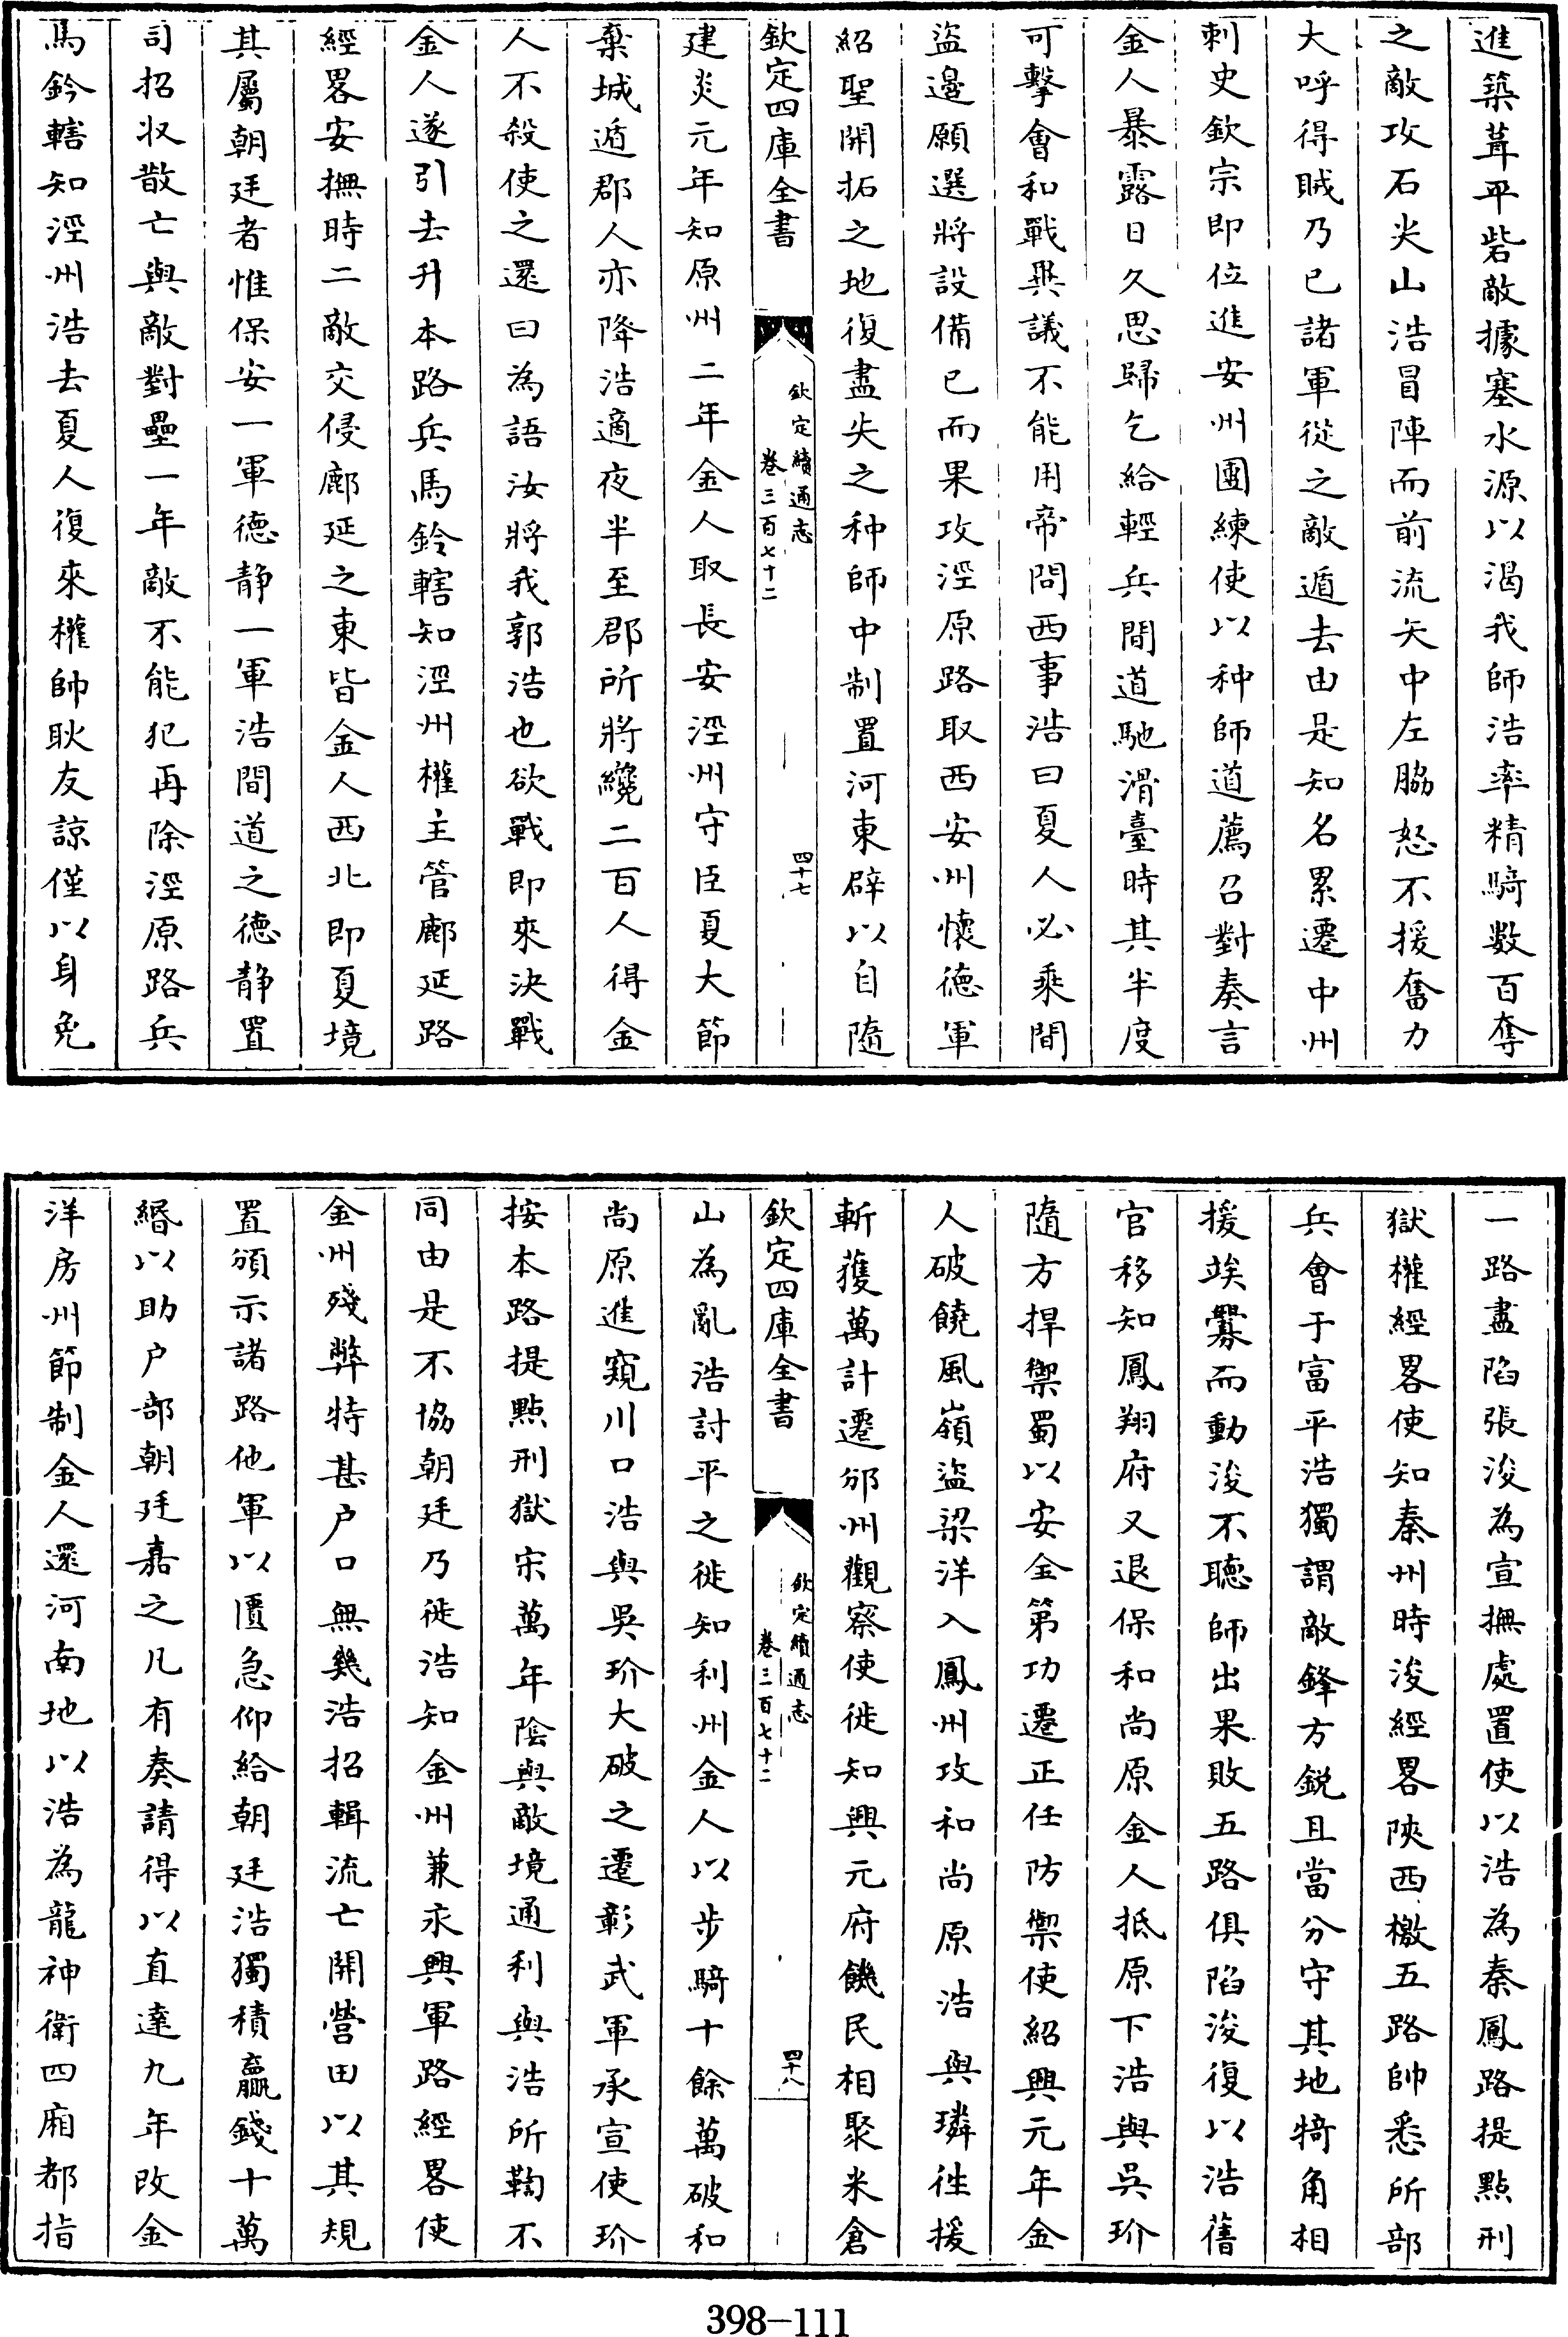 進築葺平砦敵據塞水源以渴我師浩率精騎数百奪
之敵攻石尖山浩冒陣而前流矢中左脇怒不援奮力
大呼得賊乃已諸軍從之敵遁去由是知名累遷中州
刺史欽宗即位進安州團練使以种師道薦召對奏言
金人暴露日久思歸乞給輕兵間道馳滑臺時其半度
可擊會和戰異議不能用帝問西事浩曰夏人必乘間
盜邊願選將設備已而果攻涇原路取西安州懷德軍
紹聖開拓之地復盡失之种師中制置河東辟以自隨
欽定四庫全書
欽定續通志
卷三百七十二
四十七
建炎元年知原州二年金人取長安涇州守臣夏大節
棄城遁郡人亦降浩適夜半至郡所將纔二百人得金
人不殺使之還曰為語汝將我郭浩也欲戰即來決戰
金人遂引去升本路兵馬鈐轄知涇州權主管鄜延路
經畧安撫時二敵交侵鄜延之東皆金人西北即夏境
其屬朝廷者惟保安一軍德静一軍浩間道之德静置
司招收散亡與敵對壘一年敵不能犯再除涇原路兵
馬鈐轄知涇州浩去夏人復來權帥耿友諒僅以身免
一路盡陷張浚為宣撫處置使以浩為秦鳳路提點刑
獄權經畧使知秦州時浚經畧陝西檄五路帥悉所部
兵會于富平浩獨謂敵鋒方鋭且當分守其地犄角相
援竢釁而動浚不聽師出果敗五路俱陷浚復以浩舊
官移知鳳翔府又退保和尚原金人抵原下浩與吳玠
隨方捍禦蜀以安全第功遷正任防禦使紹興元年金
人破饒風嶺盜梁洋入鳳州攻和尚原浩與璘徃援
斬獲萬計遷邠州觀察使徙知興元府饑民相聚米倉
欽定四庫全書
欽定續通志
卷三百七十二
四十八
山為亂浩討平之徙知利州金人以步騎十餘萬破和
尚原進窺川口浩與吳玠大破之遷彰武軍承宣使玠
按本路提點刑獄宋萬年陰與敵境通利與浩所鞫不
同由是不協朝廷乃徙浩知金州兼永興軍路經畧使
金州殘弊特甚户口無幾浩招輯流亡開營田以其規
置頒示諸路他軍以匱急仰給朝廷浩獨積贏錢十萬
緡以助户部朝廷嘉之凡有奏請得以直達九年改金
洋房州節制金人還河南地以浩為龍神衛四廂都指
398-111